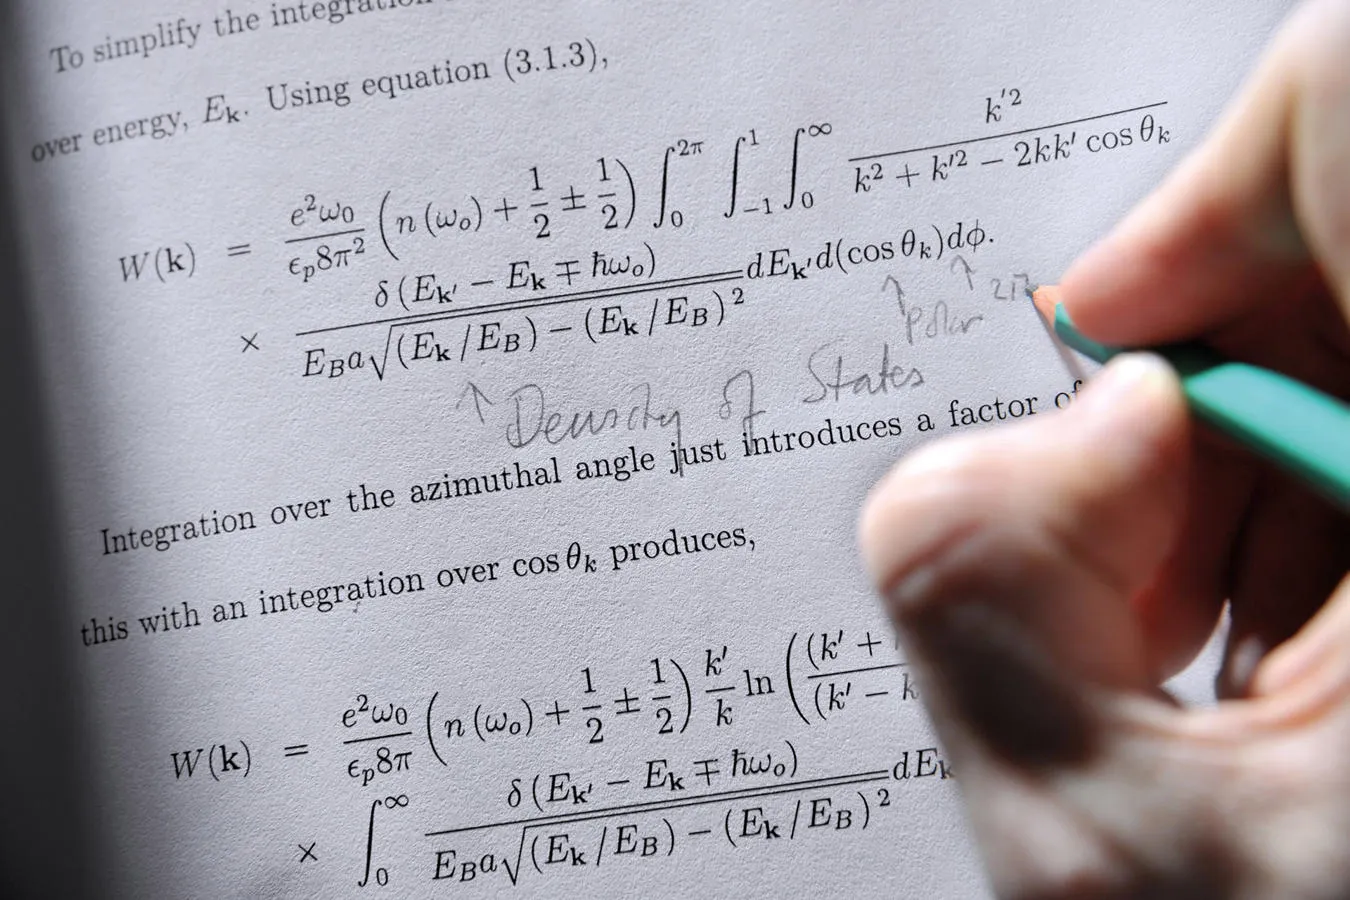 To simplify the integration
over energy, E_𝐤. Using equation (3.1.3),
W(𝐤) = \frac{e^2ω_0}{ϵ_p8π^2} (n(ω_o) + \frac{1}{2} ± \frac{1}{2}) ∫_0^{2π} ∫_{-1}^{1} ∫_0^∞ \frac{k'^2}{k^2 + k'^2 − 2kk' cos θ_k}
× \frac{δ(E_{𝐤'} − E_𝐤 ∓ ħω_o)}{E_Ba√(E_𝐤/E_B) − (E_𝐤/E_B)^2} dE_{𝐤'}d(cos θ_k)dϕ.
↑ ↑
Polar 2π
↑ Density of States
Integration over the azimuthal angle just introduces a factor of
this with an integration over cos θ_k produces,
W(𝐤) = \frac{e^2ω_0}{ϵ_p8π} (n(ω_o) + \frac{1}{2} ± \frac{1}{2}) \frac{k'}{k} ln (\frac{(k' +}{(k' − k}
× ∫_0^∞ \frac{δ(E_{𝐤'} − E_𝐤 ∓ ħω_o)}{E_Ba√(E_𝐤/E_B) − (E_𝐤/E_B)^2} dE_𝐤